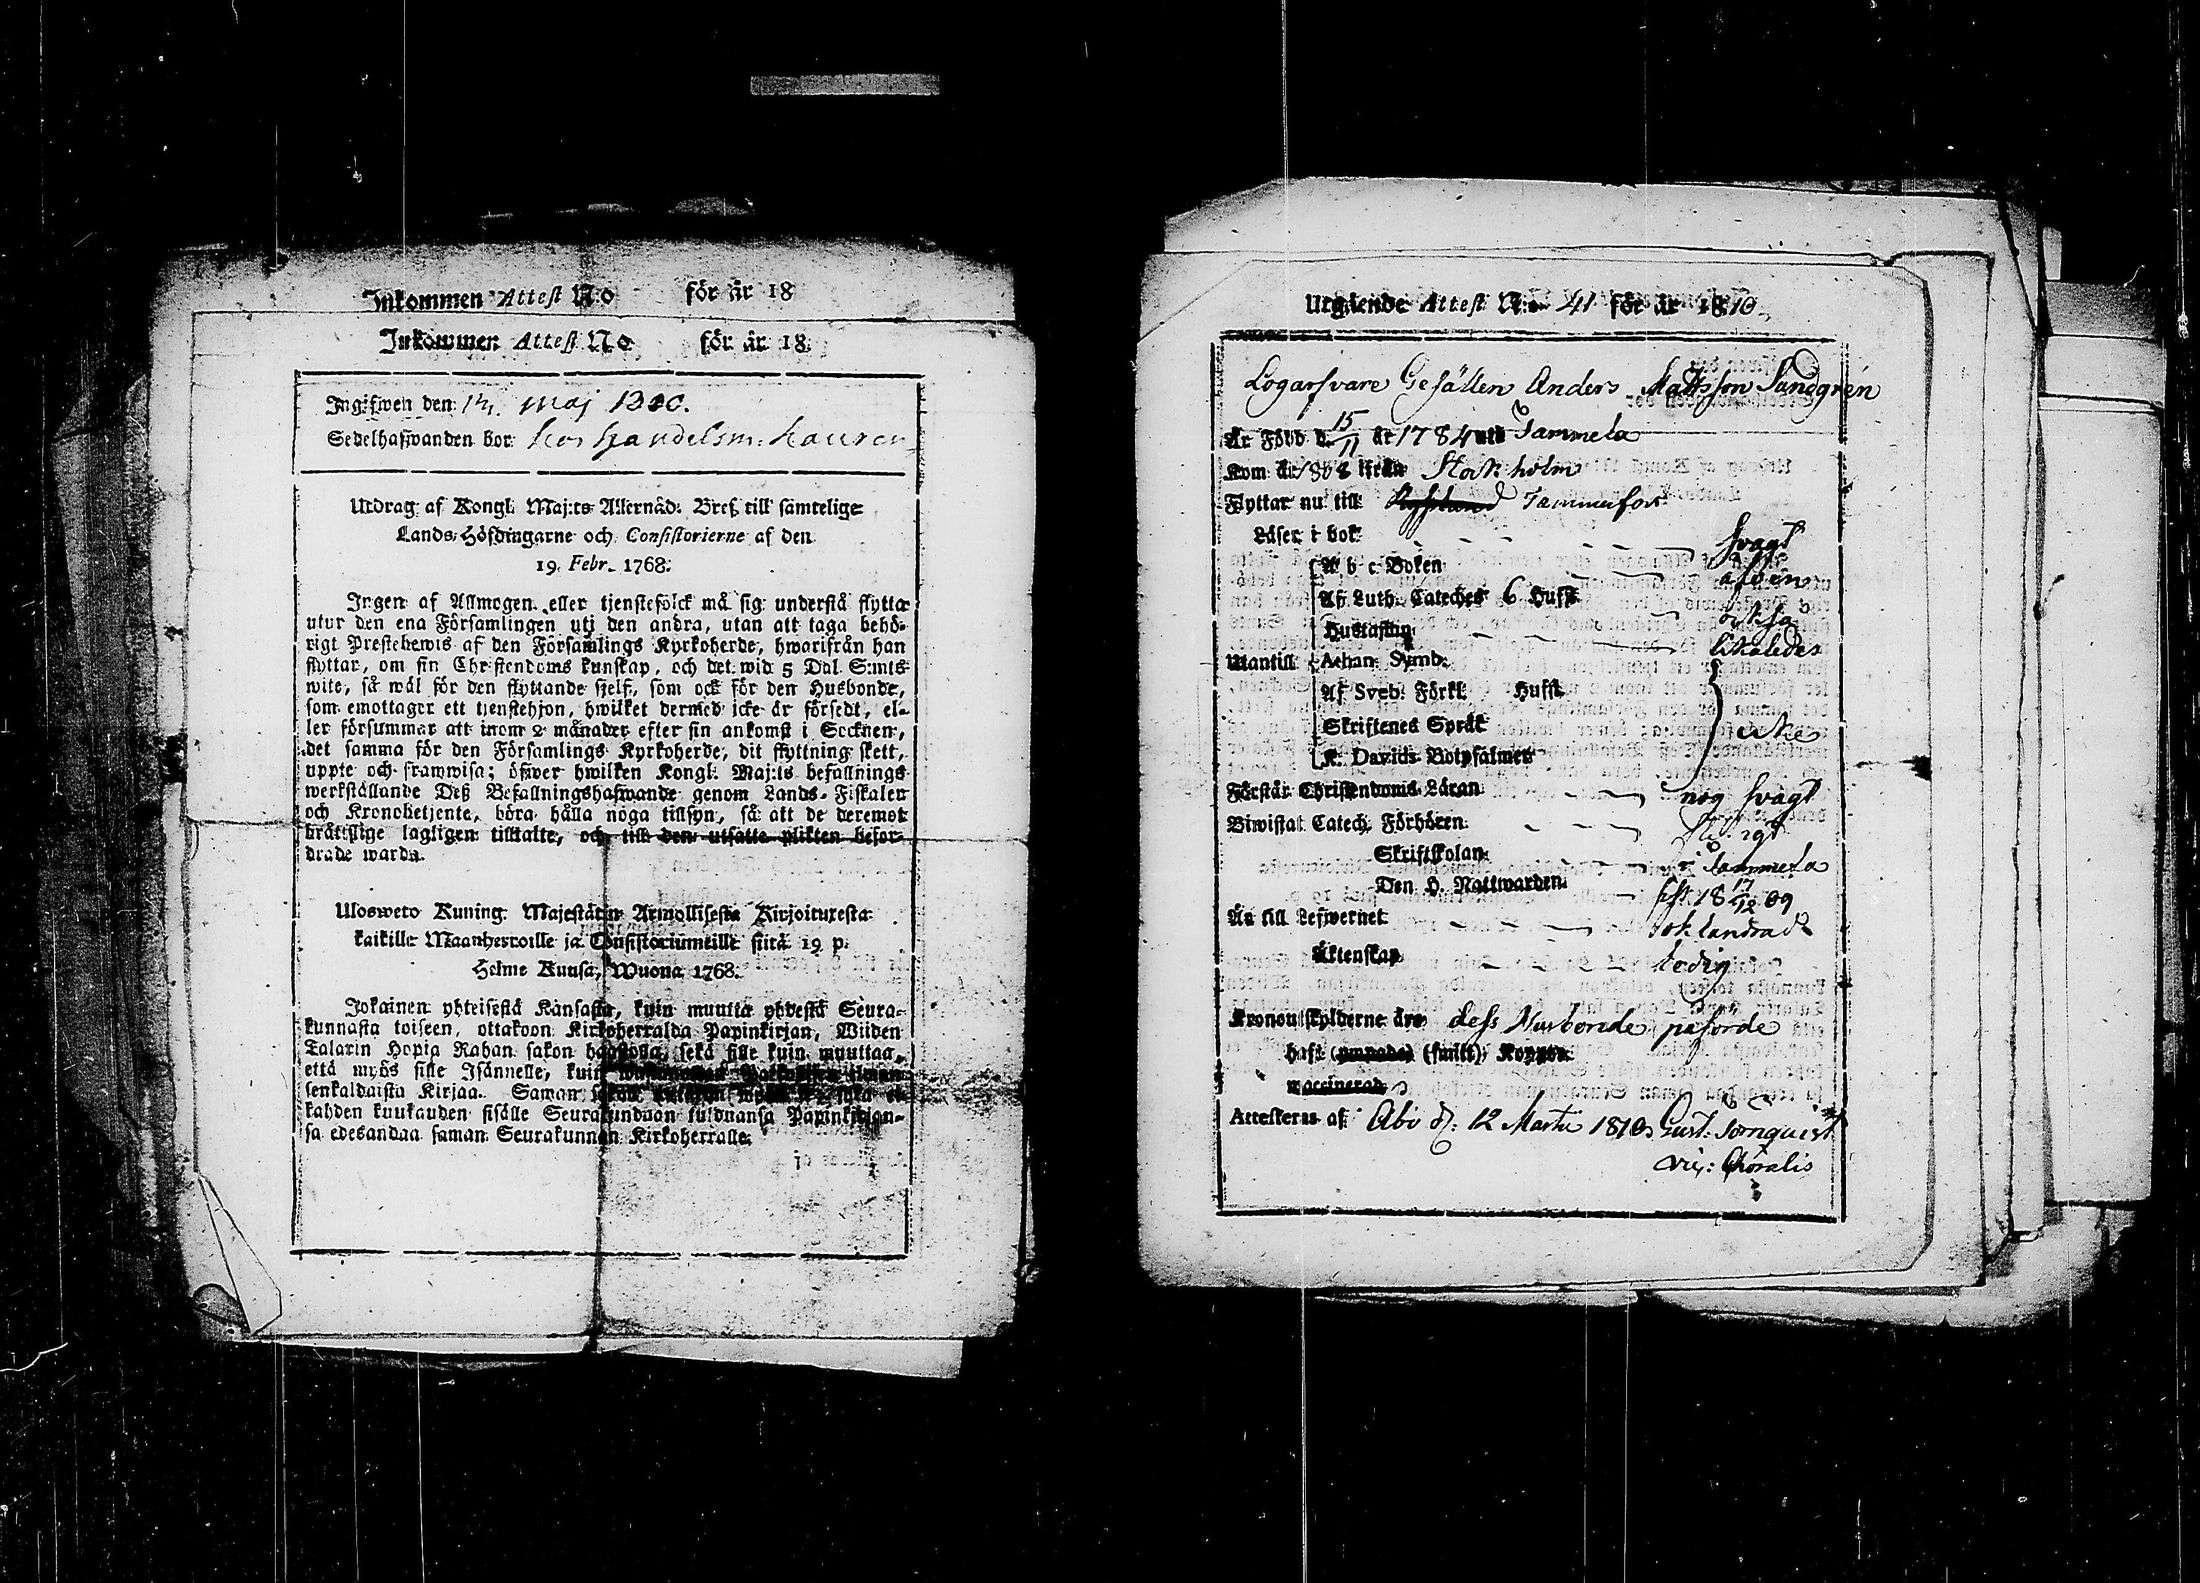 Inkommen Attest N:o för år 18
Inkommen Attest N:o för år 18
Ingifwen den maj
Sedelhafwanden bor hos Handelsm:
Utdrag af Kongl. Maj:ts Allernåd. Bref till samtelige
Lands-Höfdingarne och Consistorierne af den
19 Febr. 1768.
Ingen af Allmogen eller tjenstefolck må sig understå flytta
utur den ena Församlingen uti den andra, utan att taga behö-
rigt Prestebewis af den Församlings Kyrkoherde, hwarifrån han
flyttar, om sin Christendoms kunskap, och det wid 5 Dal. S:mts
wite, så wäl för den flyttande sjelf, som ock för den Husbonde,
som emottager ett tjenstehjon, hwilket dermed icke är försedt, el-
ler försummar att inom 2 månader efter sin ankomst i Socknen,
det samma för den Församlings Kyrkoherde, dit flyttning skett,
uppte och framwisa; öfwer hwilken Kongl. Maj:ts befallnings
werkställande Deß Befallningshafwande genom Lands-Fiskaler
och Kronobetjente, böra hålla noga tillsyn, så att de deremot
bråttslige lagligen tilltalte, och till den utsatte plikten befor-
drade warda.
Ulosweto Kuning. Majestätin Armollisesta Kirjoituxesta
kaikille Maanherroille ja Consistoriumeille siitä 19 p.
Helme Kuusa, Wuona 1768.
Jokainen yhteisestä Kansasta, kuin muutta yhdestä Seura-
kunnasta toiseen, ottakoon Kirkoherralda Papinkirjan, Wiiden
Talarin Hopia Rahan sakon haastolla, sekä sille kuin muuttaa,
että myös sille Isännelle, kuin
senkaldaista Kirjaa. Saman
kahden kuukauden sisälle Seurakundaan tulduansa Papinkirjan-
sa edesandaa saman Seurakunnan Kirkoherralle.
Utgående Attest N:o 41 för år 1810
Logarfvare Gesällen Anders Mattsson Sandgrén
Är Född d. 15/11 år 1784 uti Tammela
Kom år 180 ifrån Stockholm
Flyttar nu till Tammerfors
Läser i bok svagt
A b c Boken äfven
Af Luth. Cateches 6 Hufst. också
Hustaflan likaledes
Utantill Athan. Symb.
Af Sveb. Förkl. Hufst.
Skriftenes Språk icke
K. Davids Botpsalmer
Förstår Christendoms Läran nog svagt
Biwistat Catech. Förhören
Skriftskolan i Tammela
Den H. Nattwarden sist 18 17/12 09
Är till Lefwernet oklandrad
Äktenskap ledig
Kronoutskylderne äro dess Husbonde påförde
Haft (ympade) (smitt) Koppor
waccinerad
Attesteras af Åbo d. 12 Martii 1810 Gust. Törnquist
Vic: Choralis